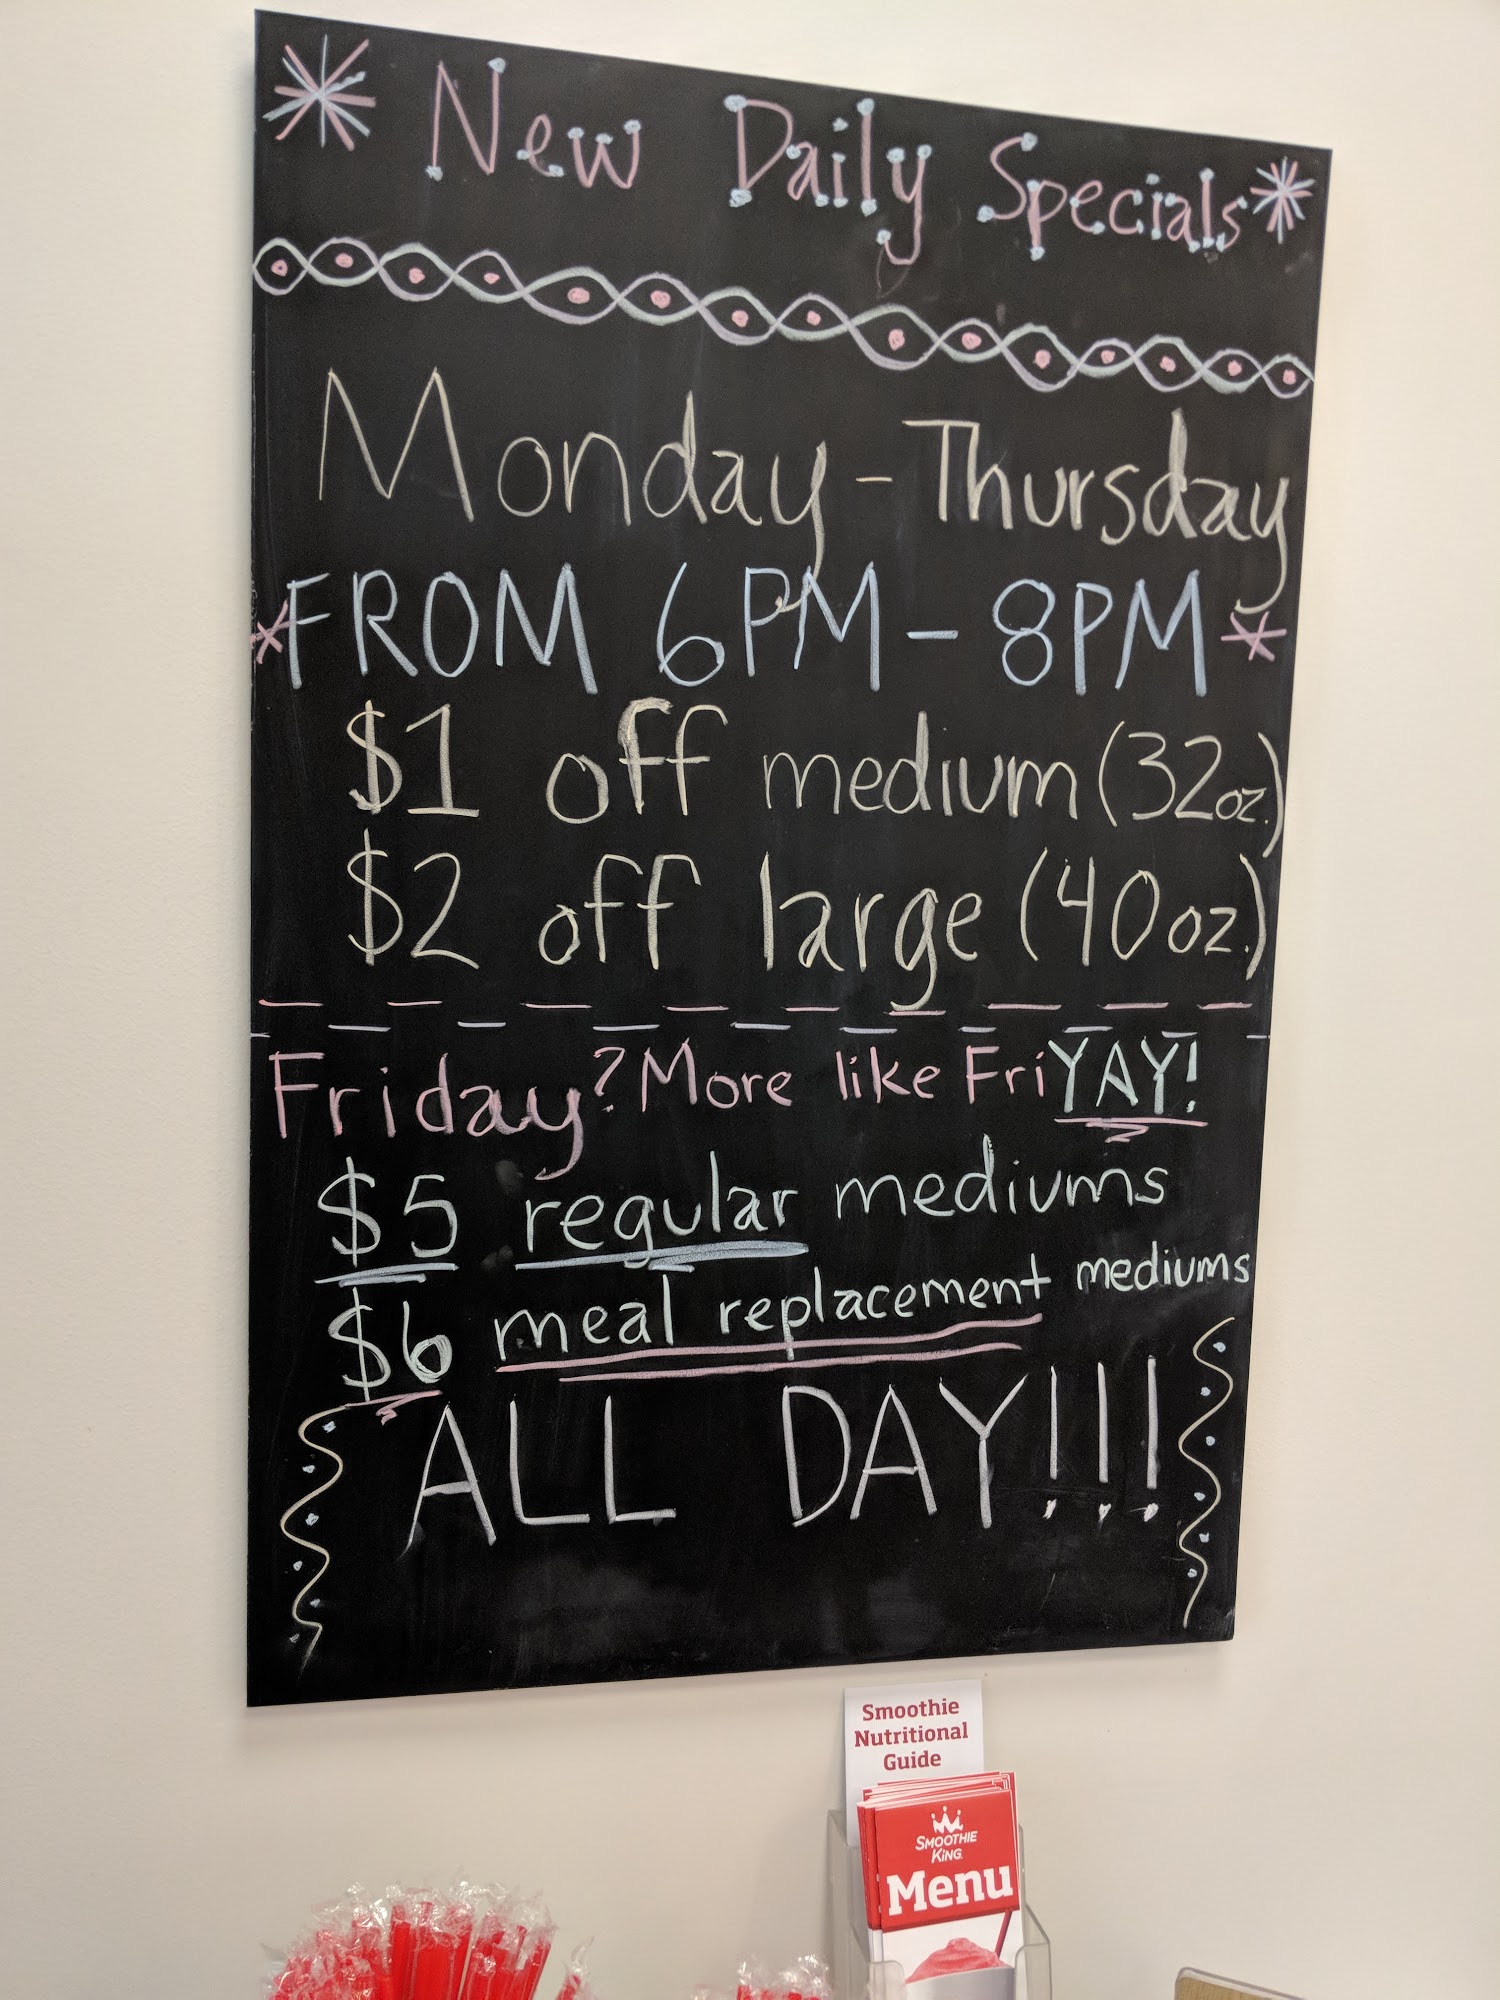 New Daily Specials
Monday - Thursday
*FROM 6PM - 8PM*
$1 off medium (32oz.)
$2 off large (40oz.)
Friday? More like FriYAY!
$5 regular mediums
$6 meal replacement mediums
ALL DAY!!!
Smoothie
Nutritional
Guide
SMOOTHIE
KING
Menu